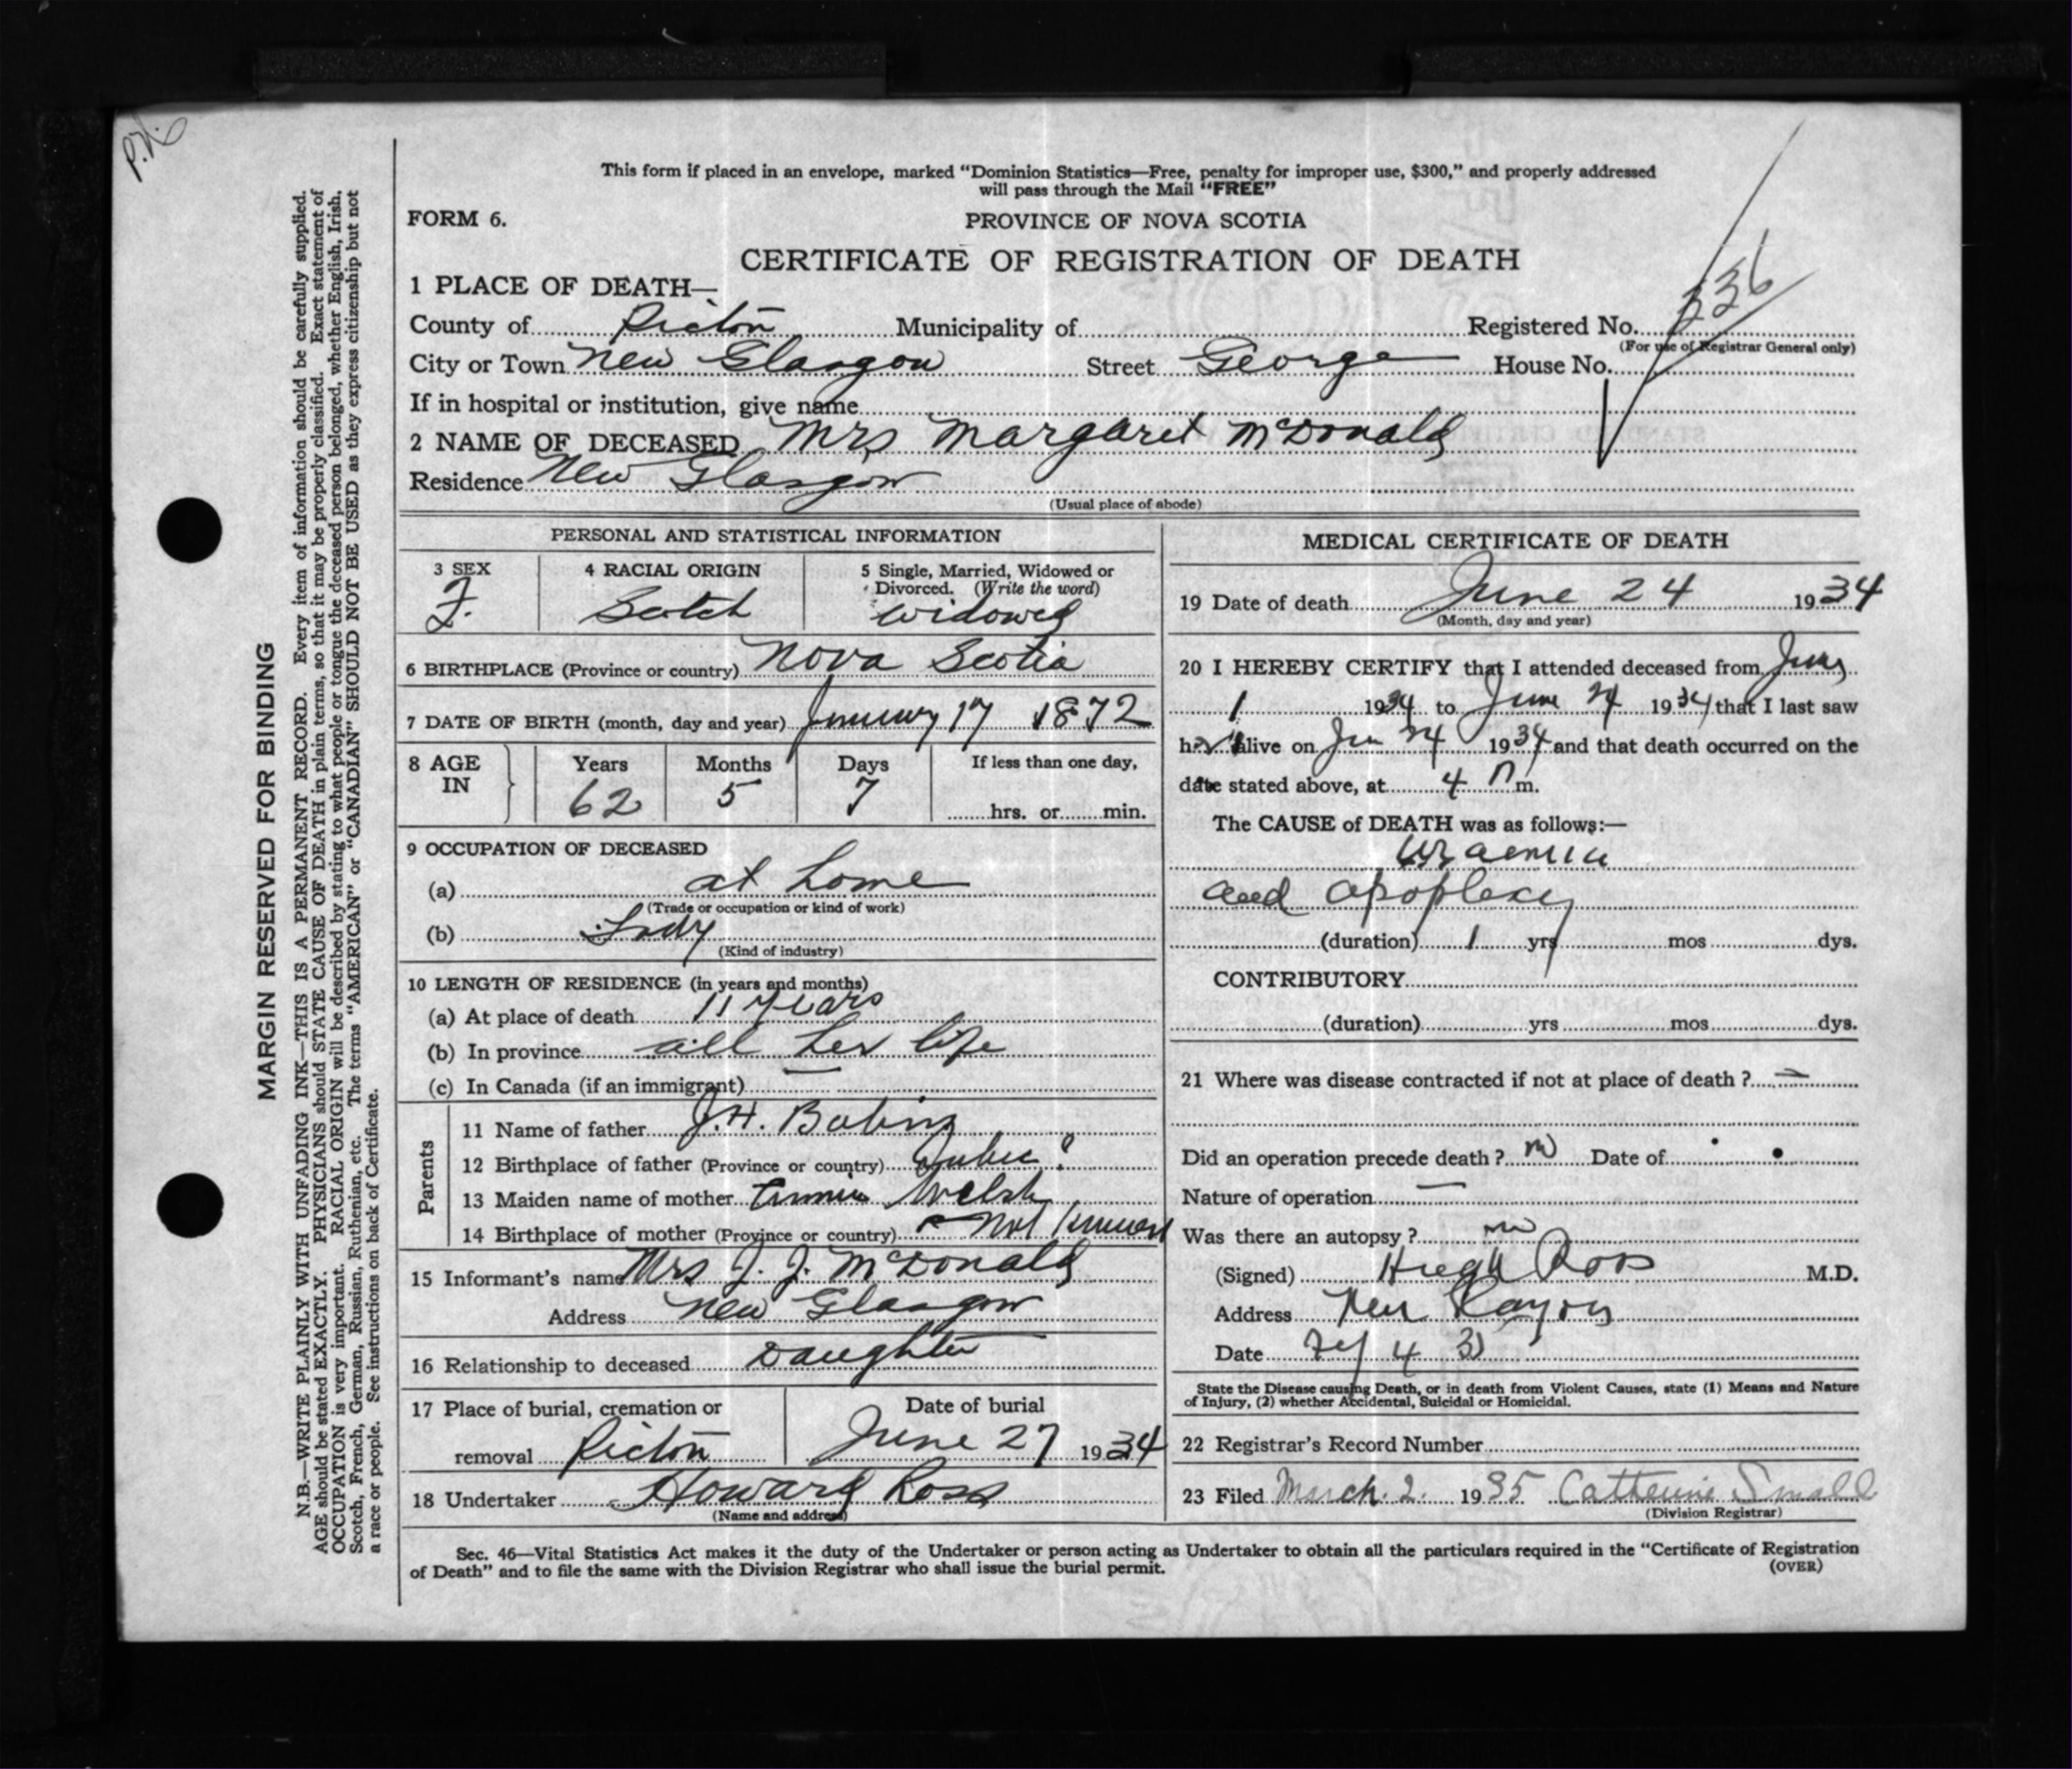 P.H.
This form if placed in an envelope, marked “Dominion Statistics—Free, penalty for improper use, $300,” and properly addressed
will pass through the Mail “FREE”
FORM 6.
PROVINCE OF NOVA SCOTIA
CERTIFICATE OF REGISTRATION OF DEATH
1 PLACE OF DEATH—
County of Pictou Municipality of Registered No. 336
(For use of Registrar General only)
City or Town New Glasgow Street George House No.
If in hospital or institution, give name
2 NAME OF DECEASED Mrs Margaret McDonald
Residence New Glasgow
(Usual place of abode)
PERSONAL AND STATISTICAL INFORMATION
3 SEX 4 RACIAL ORIGIN 5 Single, Married, Widowed or
Divorced. (Write the word)
F. Scotch widowed
6 BIRTHPLACE (Province or country) Nova Scotia
7 DATE OF BIRTH (month, day and year) January 17 1872
8 AGE IN Years Months Days If less than one day,
62 5 7 hrs. or min.
9 OCCUPATION OF DECEASED
(a) at home
(Trade or occupation or kind of work)
(b) Lady
(Kind of industry)
10 LENGTH OF RESIDENCE (in years and months)
(a) At place of death 11 years
(b) In province all her life
(c) In Canada (if an immigrant) —
Parents
11 Name of father J. H.
12 Birthplace of father (Province or country)
13 Maiden name of mother Annie Welsh
14 Birthplace of mother (Province or country) Not Known
15 Informant's name Mrs J. J. McDonald
Address New Glasgow
16 Relationship to deceased Daughter
17 Place of burial, cremation or Date of burial
removal Pictou June 27 1934
18 Undertaker Howard Ross
(Name and address)
MEDICAL CERTIFICATE OF DEATH
19 Date of death June 24 1934
(Month, day and year)
20 I HEREBY CERTIFY that I attended deceased from June
1 1934 to June 24 1934 that I last saw
her alive on Jun 24 1934 and that death occurred on the
date stated above, at 4 m.
The CAUSE of DEATH was as follows:—
Uraemia
and apoplexy
(duration) 1 yrs mos dys.
CONTRIBUTORY
(duration) yrs mos dys.
21 Where was disease contracted if not at place of death ? —
Did an operation precede death ? no Date of
Nature of operation —
Was there an autopsy ? no
(Signed) Hugh Ross M.D.
Address
Date 4
State the Disease causing Death, or in death from Violent Causes, state (1) Means and Nature
of Injury, (2) whether Accidental, Suicidal or Homicidal.
22 Registrar's Record Number
23 Filed March. 2. 1935 Catherine Small
(Division Registrar)
Sec. 46—Vital Statistics Act makes it the duty of the Undertaker or person acting as Undertaker to obtain all the particulars required in the “Certificate of Registration
of Death” and to file the same with the Division Registrar who shall issue the burial permit.
(OVER)
MARGIN RESERVED FOR BINDING
N.B.—WRITE PLAINLY WITH UNFADING INK—THIS IS A PERMANENT RECORD. Every item of information should be carefully supplied.
AGE should be stated EXACTLY. PHYSICIANS should STATE CAUSE OF DEATH in plain terms, so that it may be properly classified. Exact statement of
OCCUPATION is very important. RACIAL ORIGIN will be described by stating to what people or tongue the deceased person belonged, whether English, Irish,
Scotch, French, German, Russian, Ruthenian, etc. The terms “AMERICAN” or “CANADIAN” SHOULD NOT BE USED as they express citizenship but not
a race or people. See instructions on back of Certificate.